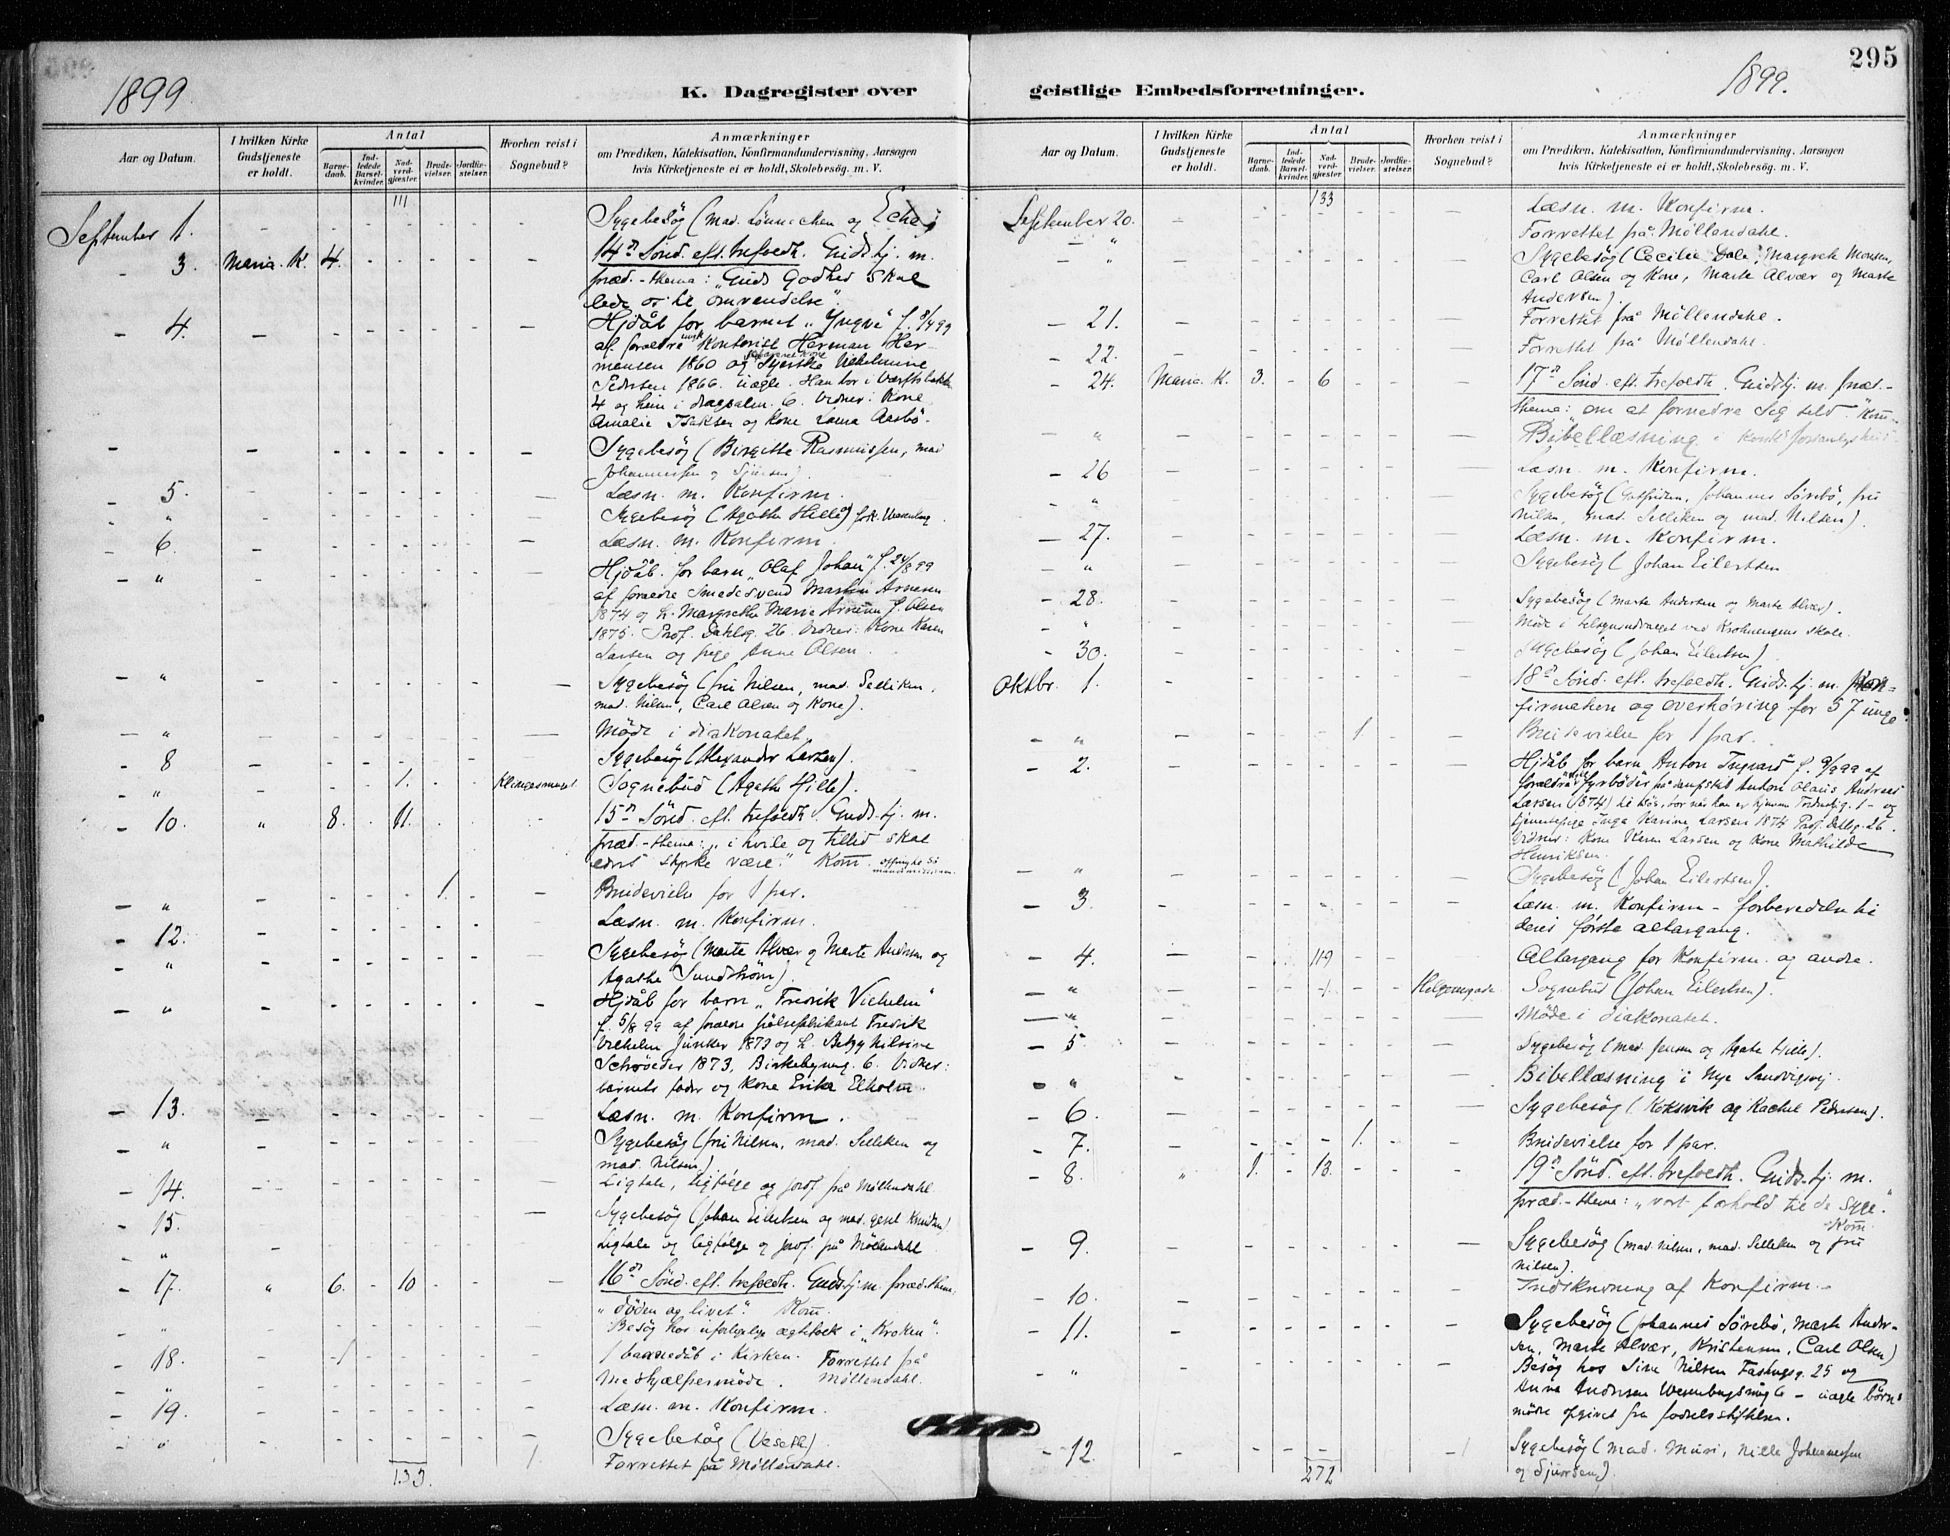 295
1899
K. Dagregister over
Aar og Datum.
I hvilken Kirke Gudstjeneste er holdt.
Antal
Barne-daab.
Ind-ledede Barsel-kvinder.
Nad-verd-gjester.
Brude-vielser.
Jordfæ-stelser.
Hvorhen reist i Sognebud?
Anmærkninger
om Prædiken, Katekisation, Konfirmandundervisning, Aarsagen
hvis Kirketjeneste ei er holdt, Skolebesøg. m. V.
111
September 1. Sygebesøg (mad. Lønnechen og
3. Maria. K. 4. 14de Sønd. eft. trefoldh. Gudstj. m.
præd. - thema: "Guds Godhed skal
lede os til omvendelse".
4. Hjdåb for barnet "Yngve" f.
af forældre Kontorist Herman Her-
mansen 1860 og Syerske Vilhelmine
Pedersen 1866. uægte. Han bor i Værftsbakken
4 og hun i 6. Vidner: Kone
Amalie Isaksen og Kone Laura Aasbø.
Sygebesøg (Birgitte Rasmussen, mad
Johannessen og Sjursen)
5. Læsn. m. Konfirm.
" Sygebesøg (Agathe Hille)
6. Læsn. m. Konfirm.
" Hjdåb. for barn "Olaf Johan" f. 24/8 99
af forældre Smedesvend Martin Arnesen
1874 og h. Margrethe Marie Arnesen f. Olsen
1875. Prof. Dahlsg. 26. Vidner: Kone Karen
Larsen og pige Anne Olsen.
" Sygebesøg (fru Nilsen, mad. Selliken,
mad. Nilsen, Carl Olsen og Kone).
" Møde i diakonatet.
8 Sygebesøg (Alexander Larsen).
" 1. Sognebud (Agathe Hille).
10. " 8. 11. 15de Sønd. eft. trefoldh. Guds.tj. m.
præd. - thema: "i hvile og tillid skal
eders styrke være." Kom.
" 1. Brudevielse for 1 par.
12. Læsn. m. Konfirm.
" Sygebesøg (Marte Alvær og Marte Andersen og
Agathe Sundstrøm).
" Hjdåb for barn "Fredrik Vilhelm"
f. 5/8 99 af forældre pølsefabrikant Fredrik
Vilhelm Junker 1873 og h. Betzy Nilsine
Schrøeder 1873, Birkebeyneng. 6. Vidner:
barnets fader og Kone Erika Elholm.
13. Læsn. m. Konfirm.
" Sygebesøg (fru Nilsen, mad. Selliken og
mad. Nilsen)
14. Ligtale, ligfølge og jordf på Møllendahl.
15. Sygebesøg (Johan Eilertsen og mad. Knudsen)
" Ligtale og ligfølge og jordf. på Møllendahl
17. " 6. 10 16de Sønd. eft. trefoldh. Gudstj. m. præd. them.
"døden og livet". Kom.
" Besøg hos ægtefolk i "Kroken".
18. 1 barnedåb i Kirken. Forrettet på
" Møllendahl.
19. Læsn. m. Konfirm.
" Sygebesøg
Forrettet på Møllendahl.
133.
1899.
geistlige Embedsforretninger.
Aar og Datum.
I hvilken Kirke Gudstjeneste er holdt.
Antal
Barne-daab.
Ind-ledede Barsel-kvinder.
Nad-verd-gjester.
Brude-vielser.
Jordfæ-stelser.
Hvorhen reist i Sognebud?
Anmærkninger
om Prædiken, Katekisation, Konfirmandundervisning, Aarsagen
hvis Kirketjeneste ei er holdt, Skolebesøg. m. V.
133
September 20. Læsn. m. Konfirm.
Forrettet på Møllendahl.
" Sygebesøg (Cecilie Dale, Margrete Monsen,
Carl Olsen og Kone, Marte Alvær og Marte
Andersen).
21. Forrettet på Møllendahl.
22. Forrettet på Møllendahl.
24. Maria K. 3. 6 17de Sønd. eft. trefoldh. Gudstj. m. præd. -
thema: "om at fornedre seg selv". Kom.
" Bibellæsning i
26 Læsn. m. Konfirm.
" Sygebesøg (Johannes Sørebø, fru
Nilsen, mad. Selliken og mad. Nilsen).
27. Læsn. m. Konfirm.
" Sygebesøg (Johan Eilertsen
28. Sygebesøg (Marte Andersen og Marte Alvær).
" Møde i tilsynsudvalget ved Krohnengens skole.
30. Sygebesøg (Johan Eilertsen)
Oktbr. 1. 18de Sønd. eft. trefoldh. Guds.tj. m. Kon-
firmation og overhøring for 57 unge.
" 1. Brudevielse for 1 par.
2. Hjdåb for barn Anton Ingvard f. 9/9 99 af
forældre Fyrbøder Anton Olaus Andreas
Larsen (1874) 1 - og
tjenestepige Inga Karine Larsen 1874 Prof. Dahlsg. 26.
Vidner: Kone Karen Larsen og Kone Mathilde
Henriksen.
" Sygebesøg (Johan Eilertsen).
3. Læsn. m. Konfirm - forberedelse til
deres første altargang.
4. 119 Altargang for Konfirm. og andre.
" 1. Sognebud (Johan Eilertsen).
" Møde i diakonatet.
5 Sygebesøg (mad. Jensen og Agate Hille).
" Bibellæsning i Nye Sandvigsvej.
6. Sygebesøg (Koksvik og Rachel Pedersen).
7. 1. Brudevielse for 1 par.
8. " 1. 13. 19de Sønd. eft. trefoldh. Guds.tj. m.
præd. - thema: "vort forhold til de syge."
Kom.
9. Sygebesøg (mad. Nilsen, mad. Selliken og fru
Nilsen).
10. Indskrivning af Konfirm.
11. Sygebesøg (Johannes Sørebø, Marte Ander-
sen, Marte Alvær, Kristensen, Carl Olsen)
" Besøg hos Sina Nilsen 25 og
Anna Andersen 6 - uægte børns
mødre opgivet fra fødselsstiftelsen.
12. Sygebesøg (mad. Muri, Nille Johannessen
og Sjursen).
272